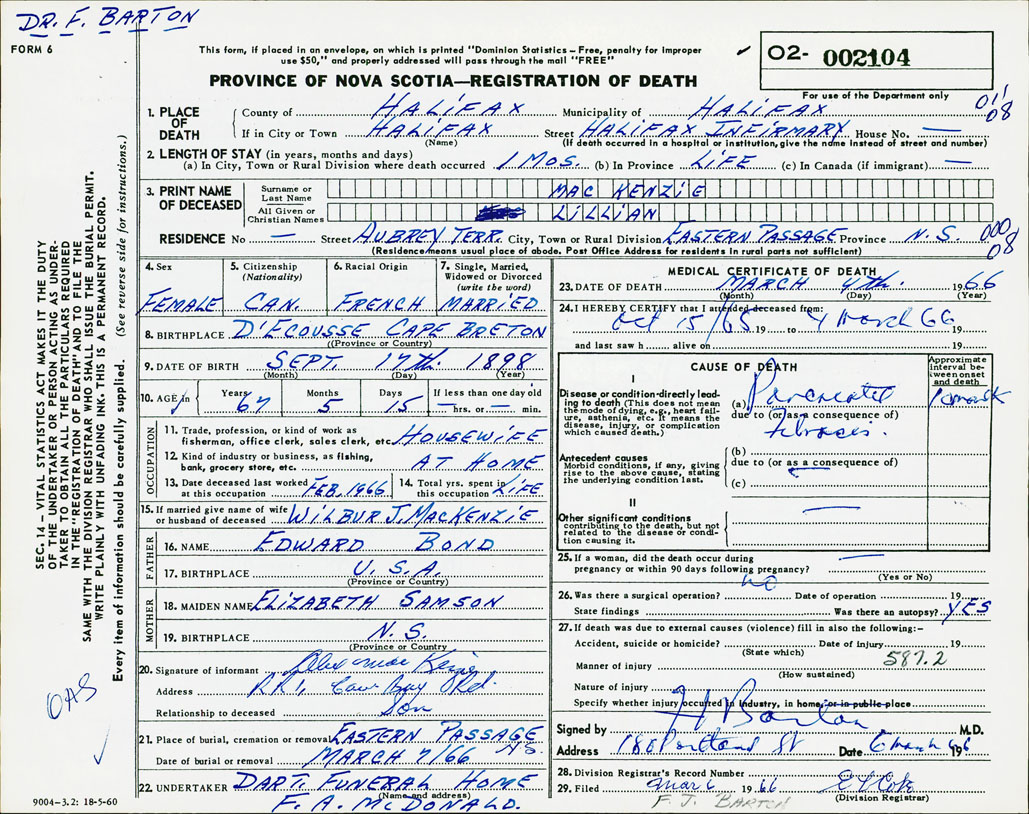 DR. F. BARTON
FORM 6
This form, if placed in an envelope, on which is printed "Dominion Statistics – Free, penalty for improper
use $50," and properly addressed will pass through the mail "FREE"
O2- 002104
PROVINCE OF NOVA SCOTIA—REGISTRATION OF DEATH
For use of the Department only
011
08
1. PLACE OF DEATH
County of HALIFAX Municipality of HALIFAX
If in City or Town HALIFAX Street HALIFAX INFIRMARY House No. —
(Name) (If death occurred in a hospital or institution, give the name instead of street and number)
2. LENGTH OF STAY (in years, months and days)
(a) In City, Town or Rural Division where death occurred 1 MOS. (b) In Province LIFE (c) In Canada (if immigrant) —
3. PRINT NAME OF DECEASED
Surname or Last Name MAC KENZIE
All Given or Christian Names LILLIAN
RESIDENCE No — Street AUBREY TERR. City, Town or Rural Division EASTERN PASSAGE Province N.S.
000
08
(Residence means usual place of abode. Post Office Address for residents in rural parts not sufficient)
4. Sex
FEMALE
5. Citizenship
(Nationality)
CAN.
6. Racial Origin
FRENCH
7. Single, Married,
Widowed or Divorced
(write the word)
MARRIED
8. BIRTHPLACE D'ECOUSSE CAPE BRETON
(Province or Country)
9. DATE OF BIRTH SEPT. 17th. 1898
(Month) (Day) (Year)
10. AGE in
Years Months Days If less than one day old
67 5 15 — hrs. or — min.
OCCUPATION
11. Trade, profession, or kind of work as
fisherman, office clerk, sales clerk, etc. HOUSEWIFE
12. Kind of industry or business, as fishing,
bank, grocery store, etc. AT HOME
13. Date deceased last worked
at this occupation FEB. 1966
14. Total yrs. spent in
this occupation LIFE
15. If married give name of wife
or husband of deceased WILBUR J. MACKENZIE
FATHER
16. NAME EDWARD BOND
17. BIRTHPLACE U.S.A.
(Province or Country)
MOTHER
18. MAIDEN NAME ELIZABETH SAMSON
19. BIRTHPLACE N.S.
(Province or Country)
20. Signature of informant
Address RR1, Cow Bay Rd.
Relationship to deceased Son
21. Place of burial, cremation or removal EASTERN PASSAGE N.S.
Date of burial or removal MARCH 7/66
22. UNDERTAKER DART. FUNERAL HOME
(Name and address)
F. A. McDONALD.
MEDICAL CERTIFICATE OF DEATH
23. DATE OF DEATH MARCH 4th. 1966
(Month) (Day) (Year)
24. I HEREBY CERTIFY that I attended deceased from:
Oct 15/65 19 to 4 March 66 19
and last saw h alive on 19
CAUSE OF DEATH
Approximate
interval be-
tween onset
and death
I
Disease or condition directly lead-
ing to death (This does not mean
the mode of dying, e.g., heart fail-
ure, asthenia, etc. It means the
disease, injury, or complication
which caused death.)
(a) Pancreatic
due to (or as a consequence of)
Fibrosis.
Antecedent causes
Morbid conditions, if any, giving
rise to the above cause, stating
the underlying condition last.
(b)
due to (or as a consequence of)
(c)
II
Other significant conditions
contributing to the death, but not
related to the disease or condi-
tion causing it.
25. If a woman, did the death occur during
pregnancy or within 90 days following pregnancy? —
(Yes or No)
26. Was there a surgical operation? NO Date of operation 19
State findings Was there an autopsy? YES
27. If death was due to external causes (violence) fill in also the following:-
Accident, suicide or homicide? Date of injury 19
(State which)
587.2
Manner of injury
(How sustained)
Nature of injury
Specify whether injury occurred in industry, in home, or in public place
Signed by F Barton M.D.
Address 180 Portland St Date 6 March 66 196
28. Division Registrar's Record Number
29. Filed Mar 6 1966
(Division Registrar)
F. J. BARTON
SEC. 14 – VITAL STATISTICS ACT MAKES IT THE DUTY
OF THE UNDERTAKER OR PERSON ACTING AS UNDER-
TAKER TO OBTAIN ALL THE PARTICULARS REQUIRED
IN THE "REGISTRATION OF DEATH" AND TO FILE THE
SAME WITH THE DIVISION REGISTRAR WHO SHALL ISSUE THE BURIAL PERMIT.
WRITE PLAINLY WITH UNFADING INK. THIS IS A PERMANENT RECORD.
Every item of information should be carefully supplied. (See reverse side for instructions.)
OAS
9004-3.2: 18-5-60